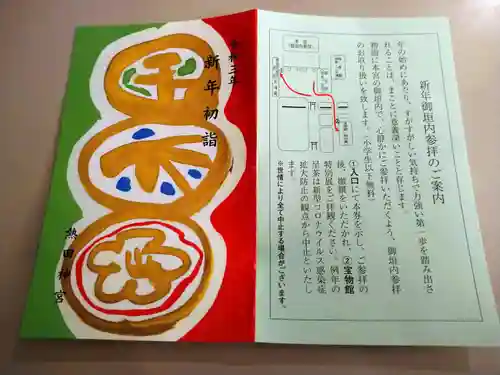 令和三年
新年初詣
熱田神宮
新年御垣内参拝のご案内
年の始めにあたり、すがすがしい気持ちで力強い第一歩を踏み出さ
れることは、まことに意義深いことと存じます。
初詣に本宮の御垣内で、心静かにご参拝いただくよう、御垣内参拝
のお取り扱いを致します。(小学生以下無料)
①入口にて本券を示し、ご参拝の
後、撤饌をいただかれ、②宝物館
特別展をご拝観ください。例年の
呈茶は新型コロナウイルス感染症
拡大防止の観点から中止といたし
ます。
※世情により全て中止する場合がございます。